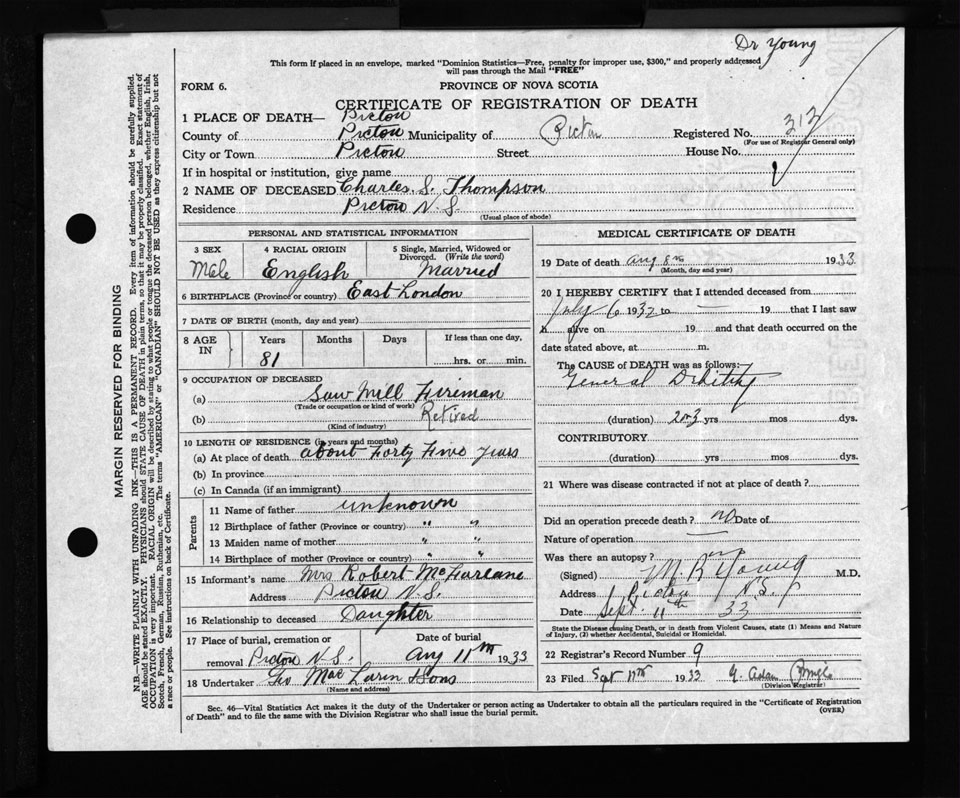 Dr Young
This form if placed in an envelope, marked "Dominion Statistics—Free, penalty for improper use, $300," and properly addressed
will pass through the Mail "FREE"
FORM 6.
PROVINCE OF NOVA SCOTIA
CERTIFICATE OF REGISTRATION OF DEATH
1 PLACE OF DEATH— Pictou
County of Pictou Municipality of Pictou Registered No. 313
(For use of Registrar General only)
City or Town Pictou Street House No.
If in hospital or institution, give name
2 NAME OF DECEASED Charles. S. Thompson
Residence Pictou N.S.
(Usual place of abode)
PERSONAL AND STATISTICAL INFORMATION
3 SEX 4 RACIAL ORIGIN 5 Single, Married, Widowed or
Divorced. (Write the word)
Male English Married
6 BIRTHPLACE (Province or country) East London
7 DATE OF BIRTH (month, day and year)
8 AGE IN Years Months Days If less than one day,
81 hrs. or min.
9 OCCUPATION OF DECEASED
(a) Saw Mill Fireman
(Trade or occupation or kind of work)
(b) Retired
(Kind of industry)
10 LENGTH OF RESIDENCE (in years and months)
(a) At place of death about Forty Five years
(b) In province
(c) In Canada (if an immigrant)
Parents
11 Name of father unknown
12 Birthplace of father (Province or country) " "
13 Maiden name of mother " "
14 Birthplace of mother (Province or country) " "
15 Informant's name Mrs Robert McFarlane
Address Pictou N.S.
16 Relationship to deceased Daughter
17 Place of burial, cremation or Date of burial
removal Pictou N.S. Aug 11th 1933
18 Undertaker Geo MacLaren & Sons
(Name and address)
MEDICAL CERTIFICATE OF DEATH
19 Date of death Aug 8th 1933
(Month, day and year)
20 I HEREBY CERTIFY that I attended deceased from
July 6 1932 to 19 that I last saw
h alive on 19 and that death occurred on the
date stated above, at m.
The CAUSE OF DEATH was as follows:
General Debility
(duration) 2 or 3 yrs mos dys.
CONTRIBUTORY
(duration) yrs mos dys.
21 Where was disease contracted if not at place of death?
Did an operation precede death? no Date of
Nature of operation
Was there an autopsy? no
(Signed) M R Young M.D.
Address Pictou N.S.
Date Sept 11th 33
State the Disease causing Death, or in death from Violent Causes, state (1) Means and Nature
of Injury, (2) whether Accidental, Suicidal or Homicidal.
22 Registrar's Record Number 9
23 Filed Sept 11th 1933
(Division Registrar)
Sec. 46—Vital Statistics Act makes it the duty of the Undertaker or person acting as Undertaker to obtain all the particulars required in the "Certificate of Registration
of Death" and to file the same with the Division Registrar who shall issue the burial permit.
(OVER)
MARGIN RESERVED FOR BINDING
N.B.—WRITE PLAINLY WITH UNFADING INK—THIS IS A PERMANENT RECORD. Every item of information should be carefully supplied.
AGE should be stated EXACTLY. PHYSICIANS should STATE CAUSE OF DEATH in plain terms, so that it may be properly classified. Exact statement of
OCCUPATION is very important. RACIAL ORIGIN will be described by stating to what people or tongue the deceased person belonged, whether English, Irish,
Scotch, French, German, Russian, Ruthenian, etc. The terms "AMERICAN" or "CANADIAN" SHOULD NOT BE USED as they express citizenship but not
a race or people. See instructions on back of Certificate.